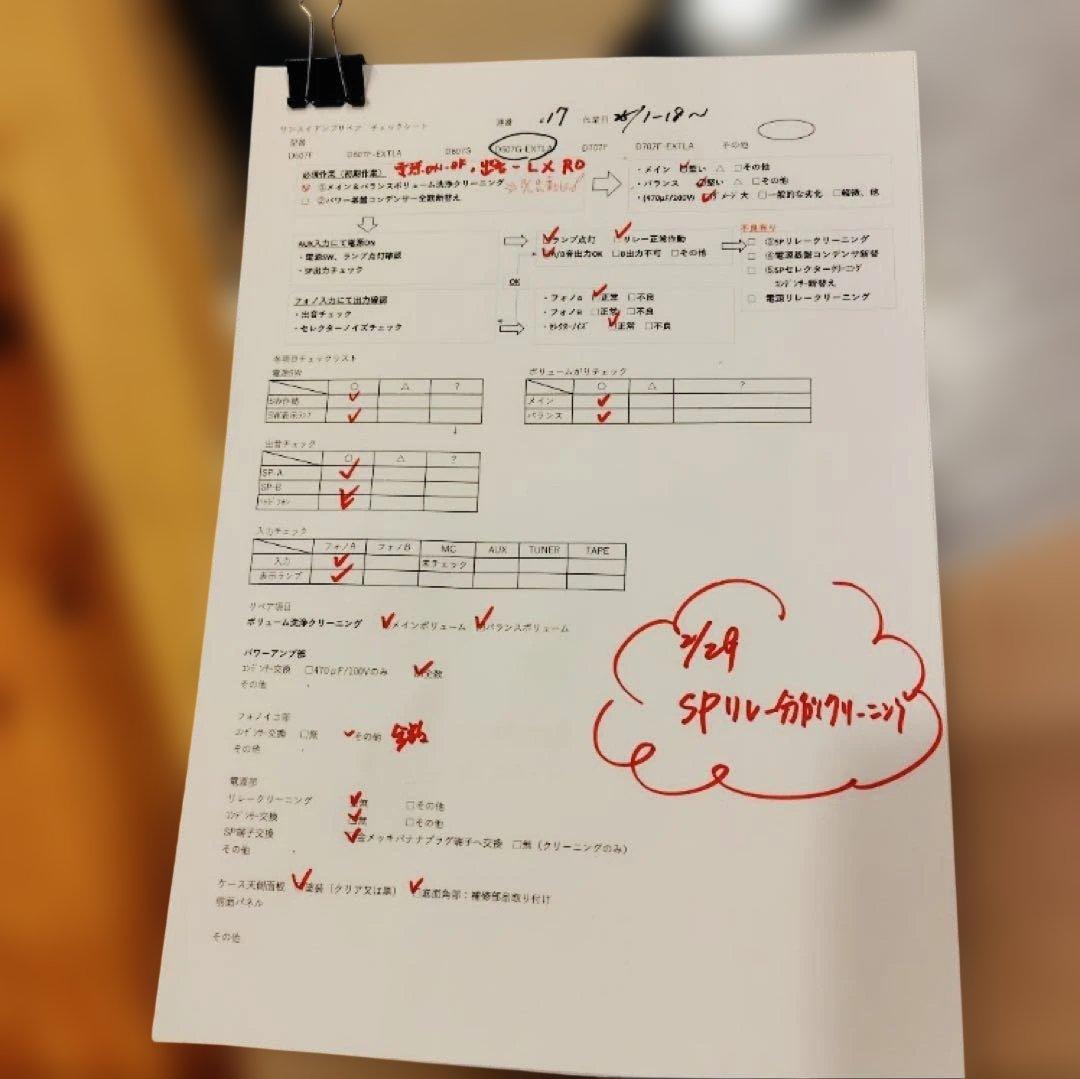 サンスイアンプリペア チェックシート 連番 .17 作業日 25/1-18~
型番
D607F D607F-EXTLA D607G D607G-EXTLA D707F D707F-EXTLA その他
必須作業(初期作業) 電源ON-OF, 出音-L X R O
①メイン&バランスボリューム洗浄クリーニング
□ ②パワー基盤コンデンサー全数断替え
・メイン 堅い △ □その他
・バランス 堅い △ □その他
・(470μF/200V) ダメージ大 □一般的な劣化 □軽微、他
AUX入力にて電源ON
・電源SW、ランプ点灯確認
・SP出力チェック
ランプ点灯 リレー正常作動
A/B音出力OK □B出力不可 □その他
OK
不良有り
□ ③SPリレークリーニング
□ ④電源基盤コンデンサ断替
□ ⑤SPセレクタークリーニング
コンデンサー断替え
□ 電源リレークリーニング
フォノ入力にて出力確認
・出音チェック
・セレクターノイズチェック
・フォノA □正常 □不良
・フォノB □正常 □不良
・セレクターノイズ □正常 □不良
各項目チェックリスト
電源SW
○ △ ?
SW作動
SW表示ランプ
↓
ボリュームガリチェック
○ △ ?
メイン
バランス
出音チェック
○ △ ?
SP-A
SP-B
ヘッドフォン
入力チェック
フォノA フォノB MC AUX TUNER TAPE
入力 未チェック
表示ランプ
リペア項目
ボリューム洗浄クリーニング メインボリューム バランスボリューム
パワーアンプ部
コンデンサー交換 □470μF/100Vのみ 全数
その他 .
フォノイコ部
コンデンサー交換 □無 その他 全数
その他 .
電源部
リレークリーニング 無 □その他
コンデンサー交換 無 □その他
SP端子交換 金メッキバナナプラグ端子へ交換 □無(クリーニングのみ)
その他 .
ケース天側面板 塗装(クリア又は黒) 底面角部:補修部品取り付け
前面パネル
その他
2/29
SPリレー分解クリーニング